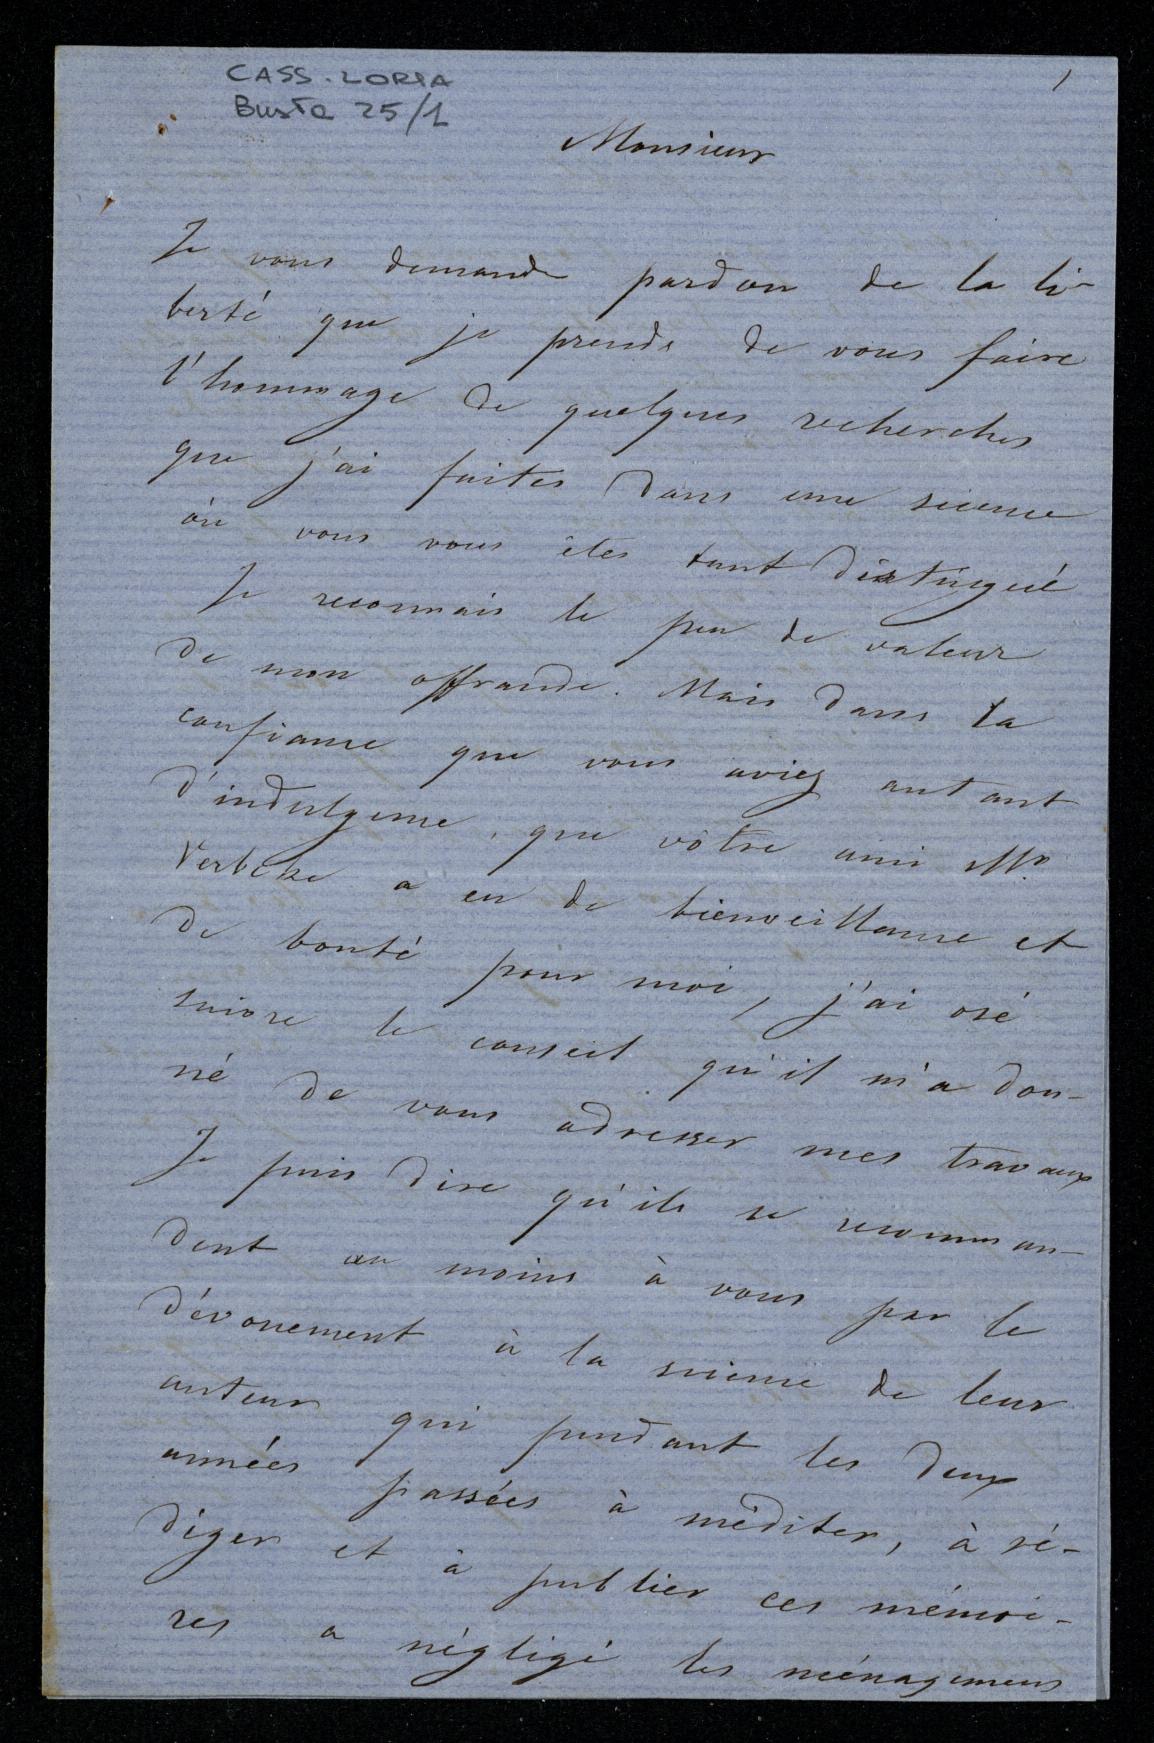 CASS. LORIA
Busta 25/1
1
Monsieur
Je vous demande pardon de la li-
berté que je prends de vous faire
l'hommage de quelques recherches
que j'ai faites dans une science
où vous vous êtes tant distingué
Je reconnais le peu de valeur
de mon offrande. Mais dans la
confiance que vous aviez autant
d'indulgence, que vôtre ami Mr.
Verbeke a eu de bienveillance et
de bonté pour moi, j'ai osé
suivre le conseil qu'il m'a don-
né de vous adresser mes travaux
Je puis dire qu'ils se recomman-
dent au moins à vous par le
dévouement à la science de leur
auteur qui pendant les deux
années passées à méditer, à ré-
diger et à publier ces mémoi-
res a négligé les ménagemens